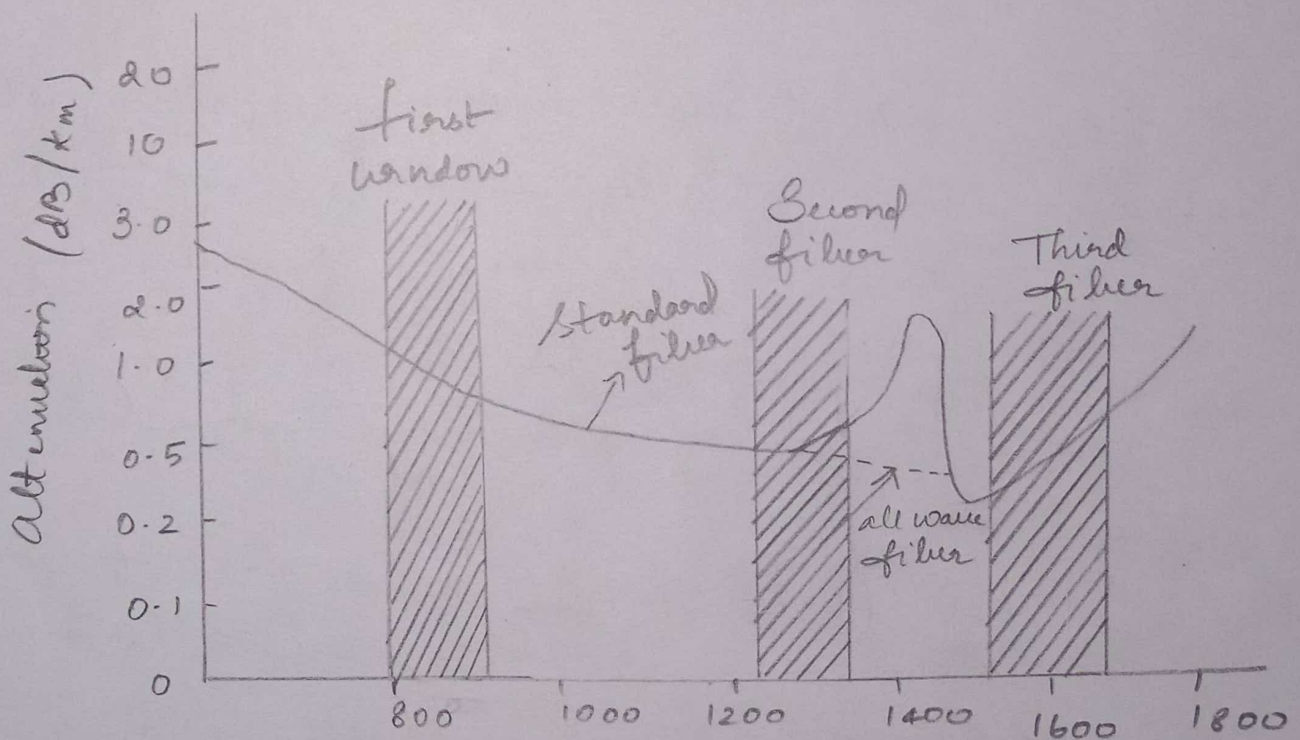 Attenuation (dB/km)
20
10
3.0
2.0
1.0
0.5
0.2
0.1
0
first
window
Standard
fiber
Second
fiber
Third
fiber
all wave
fiber
800
1000
1200
1400
1600
1800